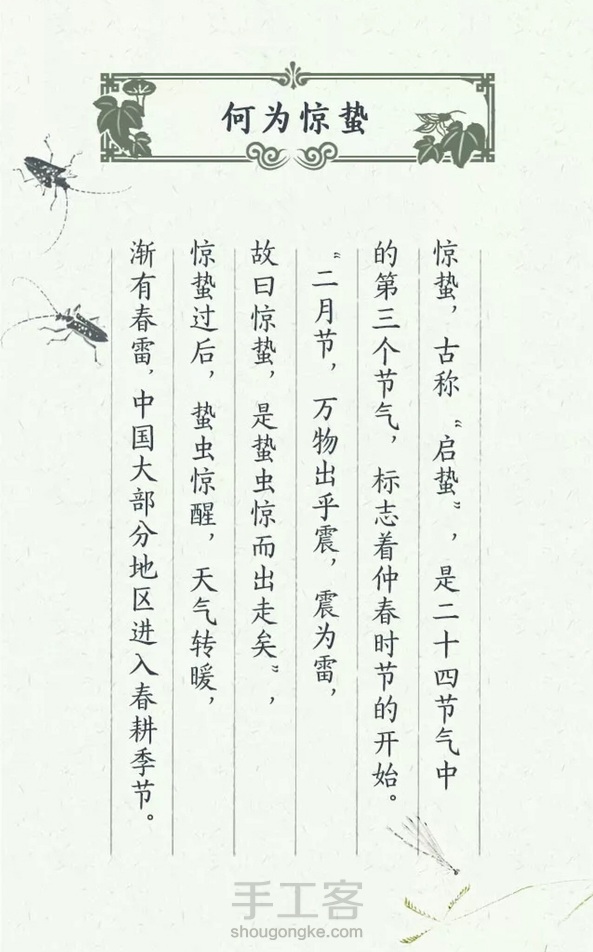 何为惊蛰
惊蛰，古称“启蛰”，是二十四节气中
的第三个节气，标志着仲春时节的开始。
“二月节，万物出乎震，震为雷，
故曰惊蛰，是蛰虫惊而出走矣”，
惊蛰过后，蛰虫惊醒，天气转暖，
渐有春雷，中国大部分地区进入春耕季节。
手工客
shougongke.com